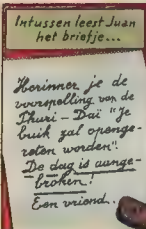 Intussen leest Juan
het briefje...
Herinner je de
voorspelling van de
Thuri-Daï "Je
buik zal openge-
reten worden".
De dag is aange-
broken!
Een vriend.